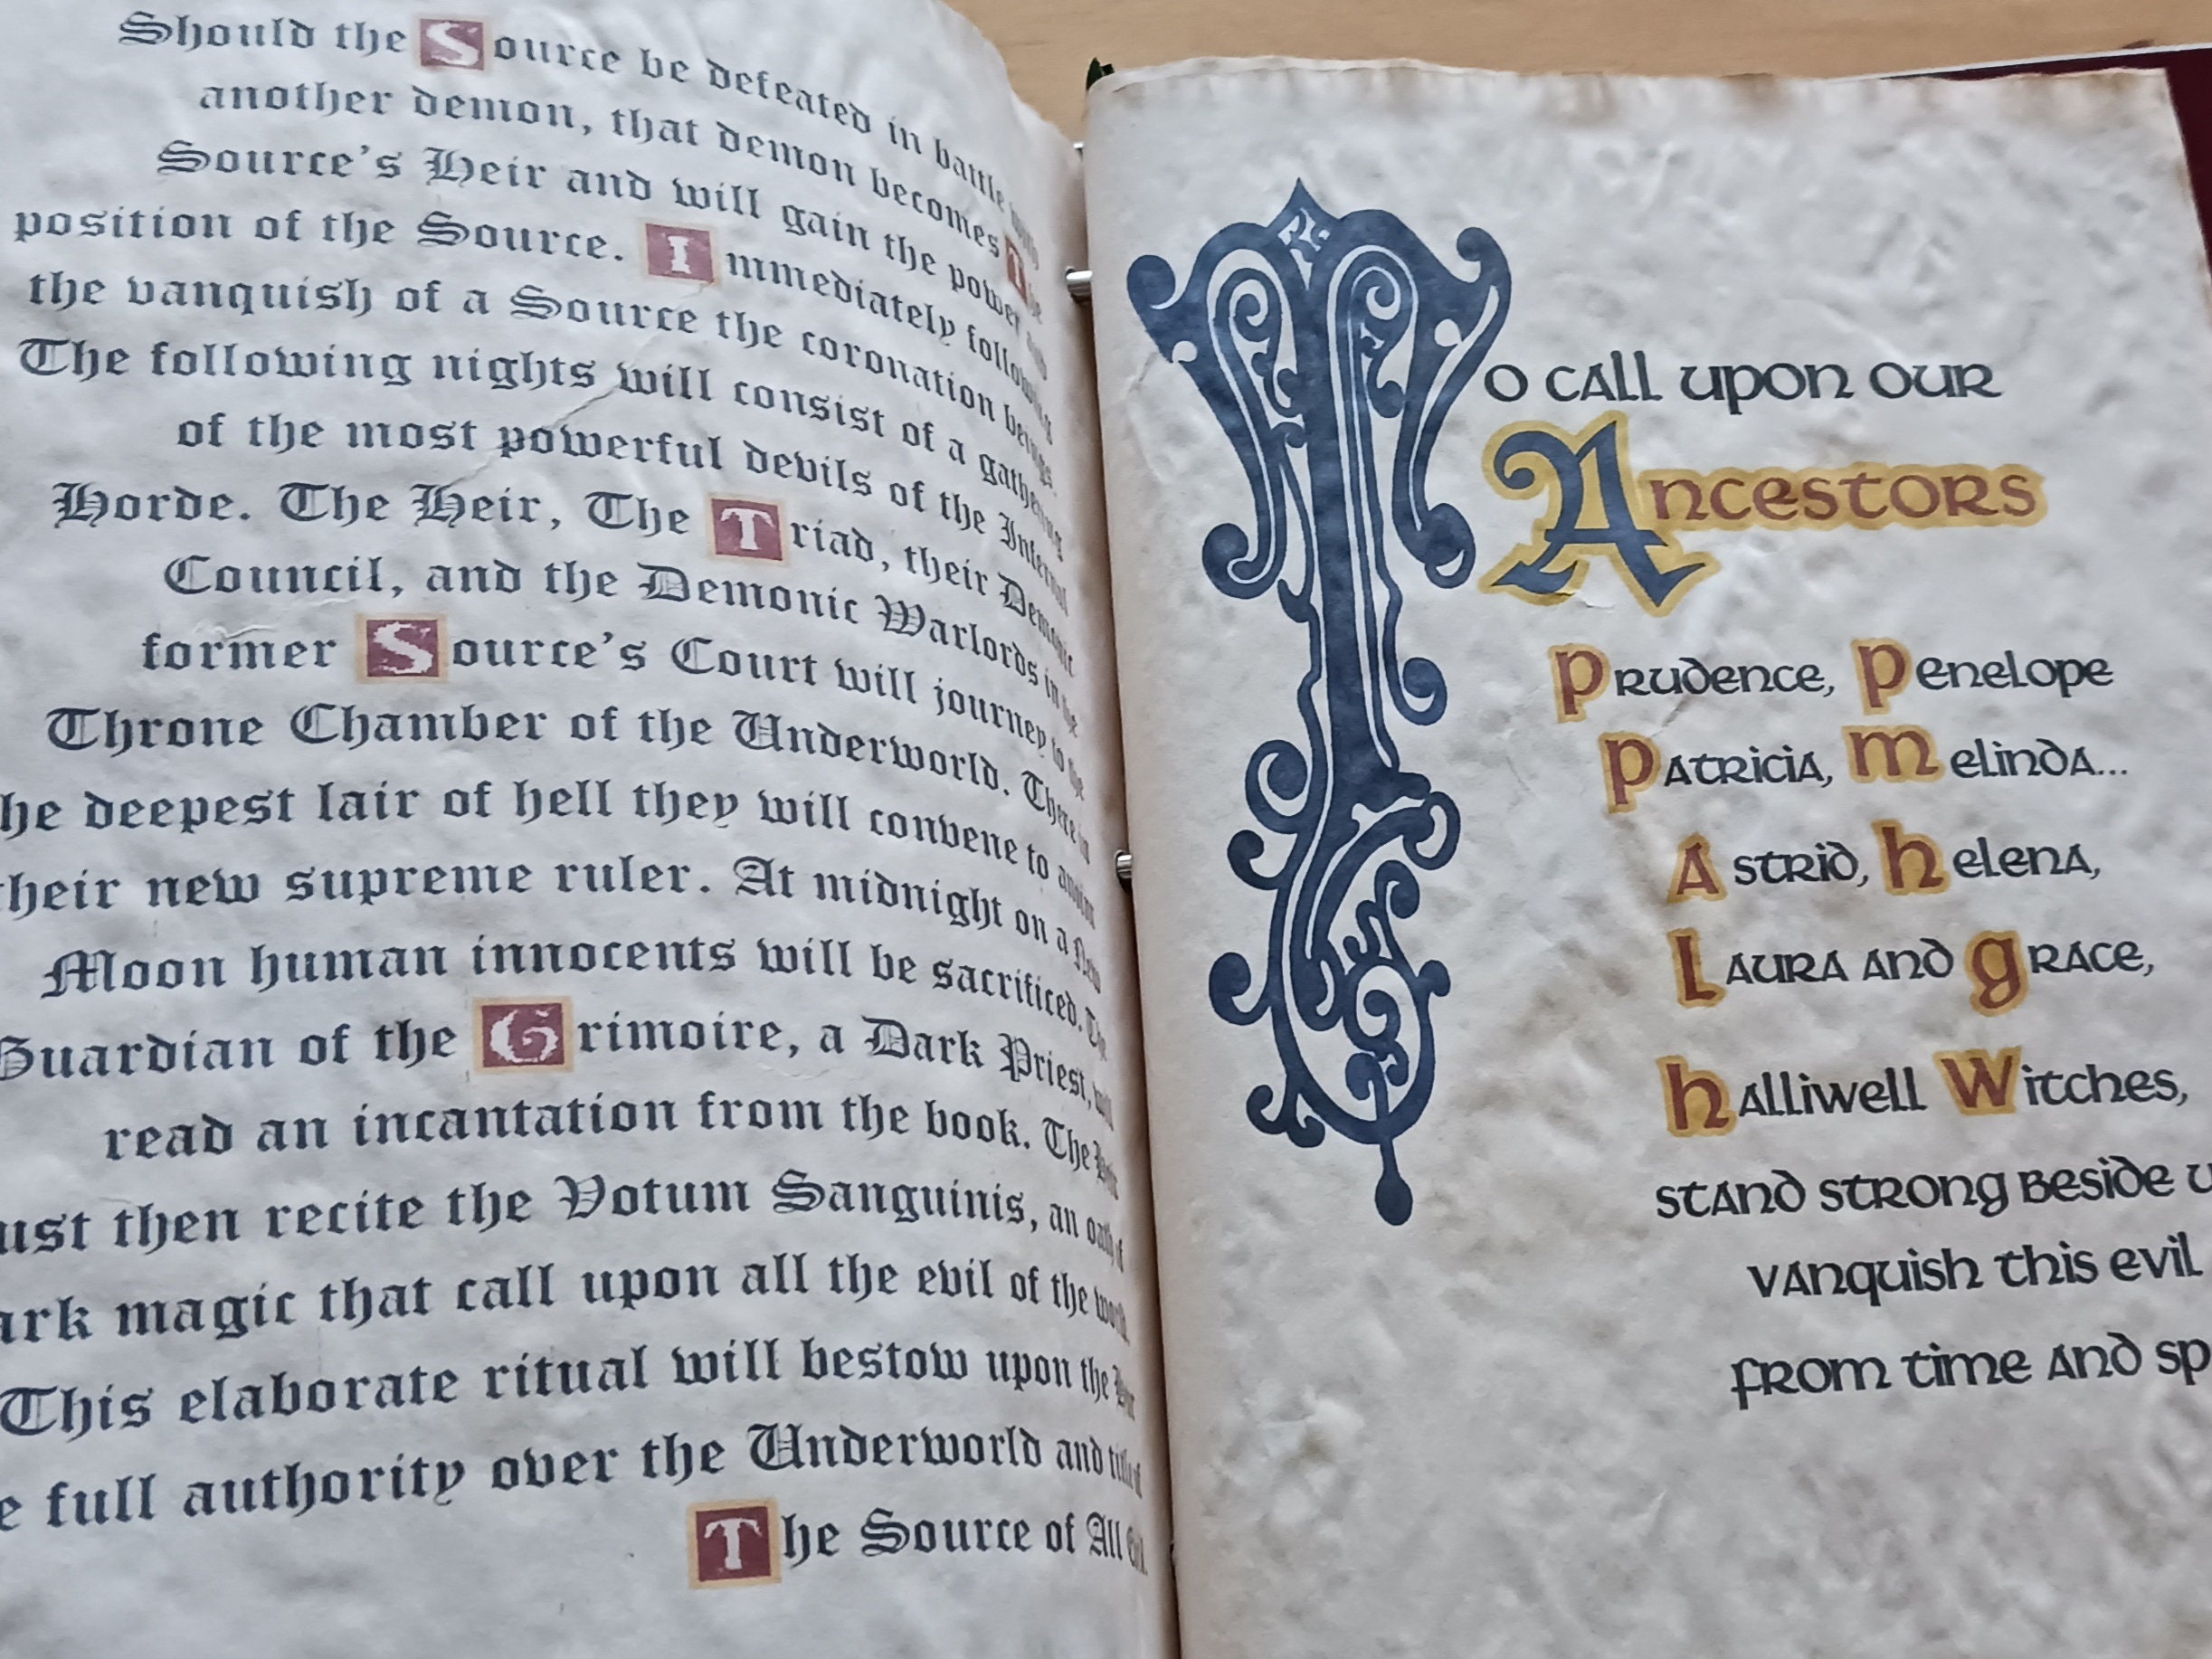 Should the Source be defeated in battle
another demon, that demon becomes The
Source's Heir and will gain the power and
position of the Source. Immediately following
the vanquish of a Source the coronation begins.
The following nights will consist of a gathering
of the most powerful devils of the Infernal
Horde. The Heir, The Triad, their Demonic
Council, and the Demonic Warlords in the
former Source's Court will journey to the
Throne Chamber of the Underworld. There in
he deepest lair of hell they will convene to anoint
their new supreme ruler. At midnight on a New
Moon human innocents will be sacrificed. The
Guardian of the Grimoire, a Dark Priest, will
read an incantation from the book. The
ust then recite the Votum Sanguinis, an oath of
ark magic that call upon all the evil of the world.
This elaborate ritual will bestow upon the
e full authority over the Underworld and title of
The Source of All Evil.
To call upon our
Ancestors
Prudence, Penelope
Patricia, Melinda...
Astrid, Helena,
Laura and Grace,
Halliwell Witches,
stand strong beside u
vanquish this evil
from time and sp